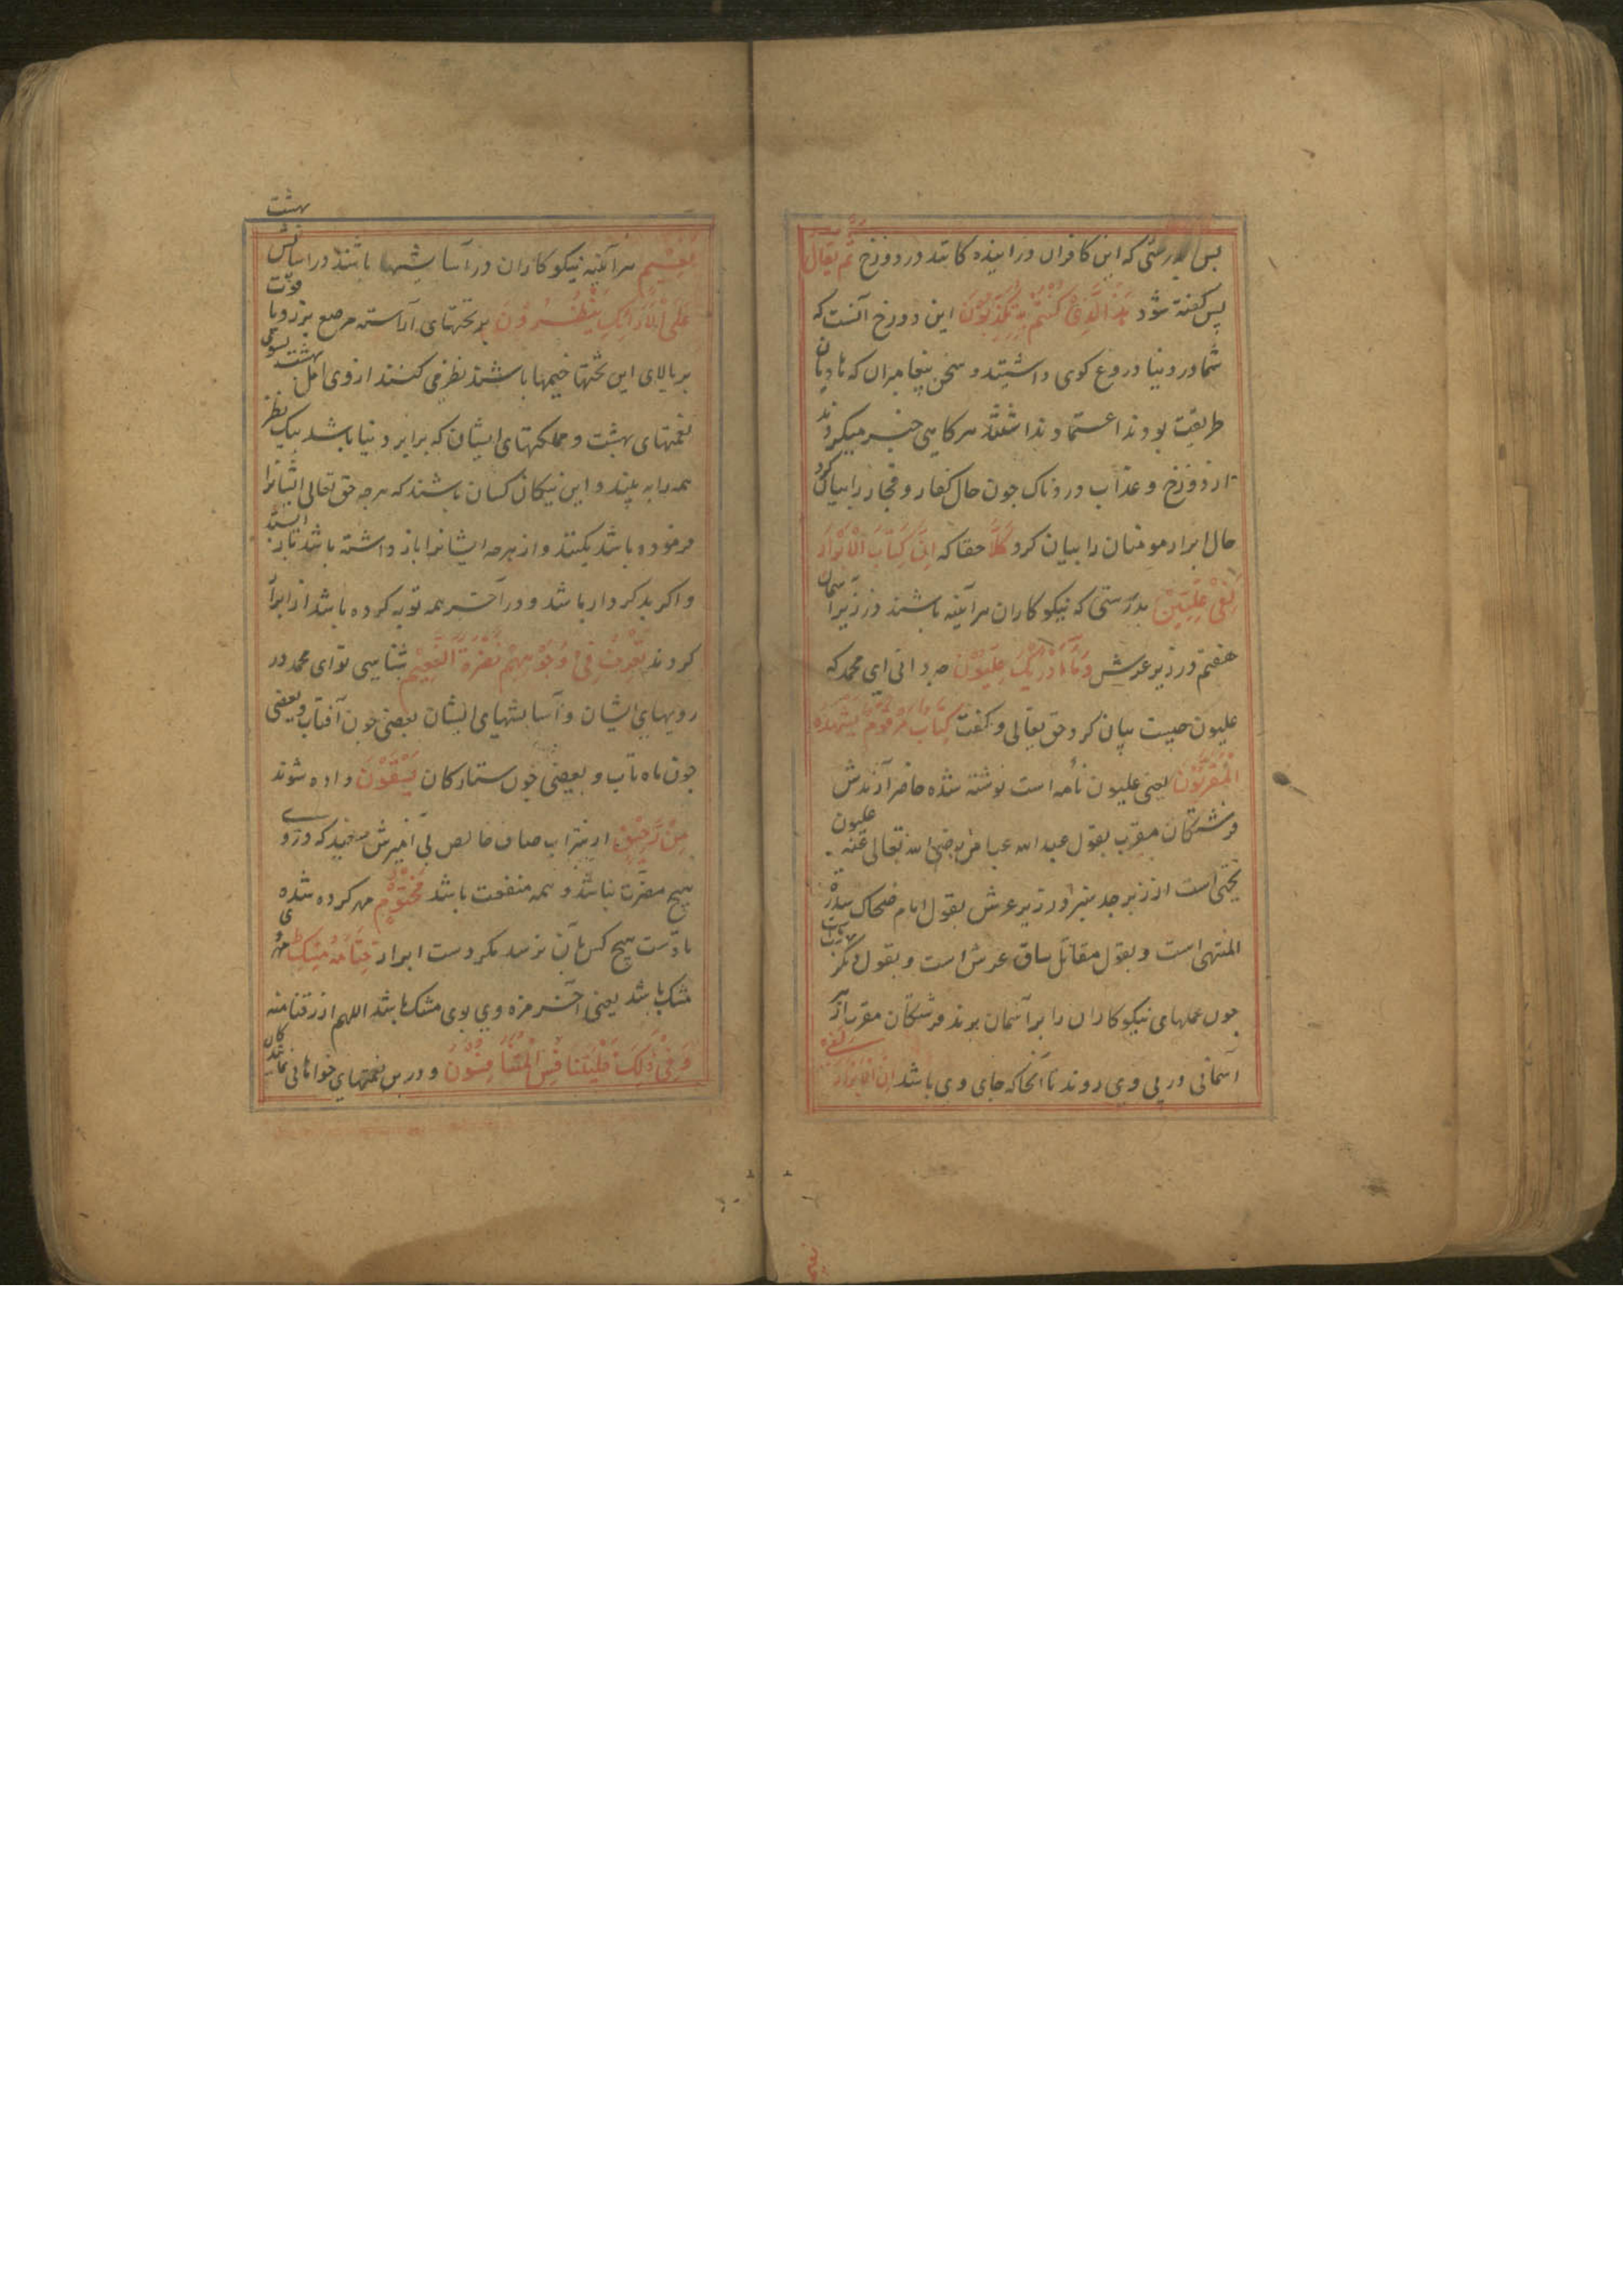 پس بدرستی که این کافران در اینده کانند در دوزخ ثُمَّ يُقَالُ
پس کفته شود هٰذَا الَّذِیْ كُنْتُمْ بِهِ تُكَذِّبُوْنَ این دوزخ آنست که
شما در دنیا دروغ کوی داشتید و سخن پیغامبران که هادیان
طریقت بودند اعتماد نداشتند هر کاهی خبر میکردند
از دوزخ و عذاب دردناک جون حال کفار و فجار را بیان کرد
حال ابرار مومنان را بیان کرد كَلَّا حقا که اِنَّ كِتَابَ الْاَبْرَارِ
لَفِیْ عِلِّیِّیْنَ بدرستی که نیکوکاران هر آینه باشند در زیر آسمان
هفتم در زیر عرش وَمَا اَدْرٰیكَ مَا عِلِّیُّوْنَ جه دانی ای محمد که
علیون جیست بیان کرد حق تعالی و کفت كِتَابٌ مَرْقُوْمٌ یَشْهَدُهُ
الْمُقَرَّبُوْنَ یعنی علیون نامه است نوشته شده حاضر آرندش
فرشتکان مقرب بقول عبد الله عباس رضی الله تعالی عنه علیون
تختی است از زبرجد سبز در زیر عرش بقول امام ضحاک سدرة
المنتهی است و بقول مقاتل ساق عرش است و بقول دیکر بهشت است
جون عملهای نیکوکاران را بر آسمان برند فرشتکان مقرب از هر
آسمانی در پی وی روند تا آنجا که جای وی باشد اِنَّ الْاَبْرَارَ لَفِیْ
بهشت
نَعِیْمٍ هر آینه نیکوکاران در آسایشها باشند در آسایش
عَلَی الْاَرَائِكِ یَنْظُرُوْنَ بر تختهای آراسته مرصع بزر و یاقوت
بر بالای این تختها خیمها باشند نظر می کنند از وی اهل بهشت بسوی
نعمتهای بهشت و مملکتهای ایشان که برابر دنیا باشد بیک نظر
همه را به بینند و این نیکان کسان باشند که هر جه حق تعالی ایشانرا
فرموده باشد بکنند و از هر جه ایشانرا باز داشته باشد باز ایستند
و اکر بدکردار باشد و در آخر همه توبه کرده باشد از ابرار
کردند تَعْرِفُ فِیْ وُجُوْهِهِمْ نَضْرَةَ النَّعِیْمِ شناسی تو ای محمد در
رویهای ایشان و آسایشهای ایشان بعضی جون آفتاب و بعضی
جون ماه تاب و بعضی جون ستارکان یُسْقَوْنَ داده شوند
مِنْ رَّحِیْقٍ از شراب صاف خالص بی آمیزش سفید که در وی
هیج مضرت نباشد و همه منفعت باشد مَخْتُوْمٍ مهر کرده شده
تا دست هیج کس بآن نرسد مکر دست ابرار خِتَامُهُ مِسْكٌ مهر وی
مشک باشد یعنی آخر مزه وی بوی مشک باشد اللهم ارزقنا منه
وَفِیْ ذٰلِكَ فَلْیَتَنَافَسِ الْمُتَنَافِسُوْنَ و در این نعمتهای خواهانی نمایند